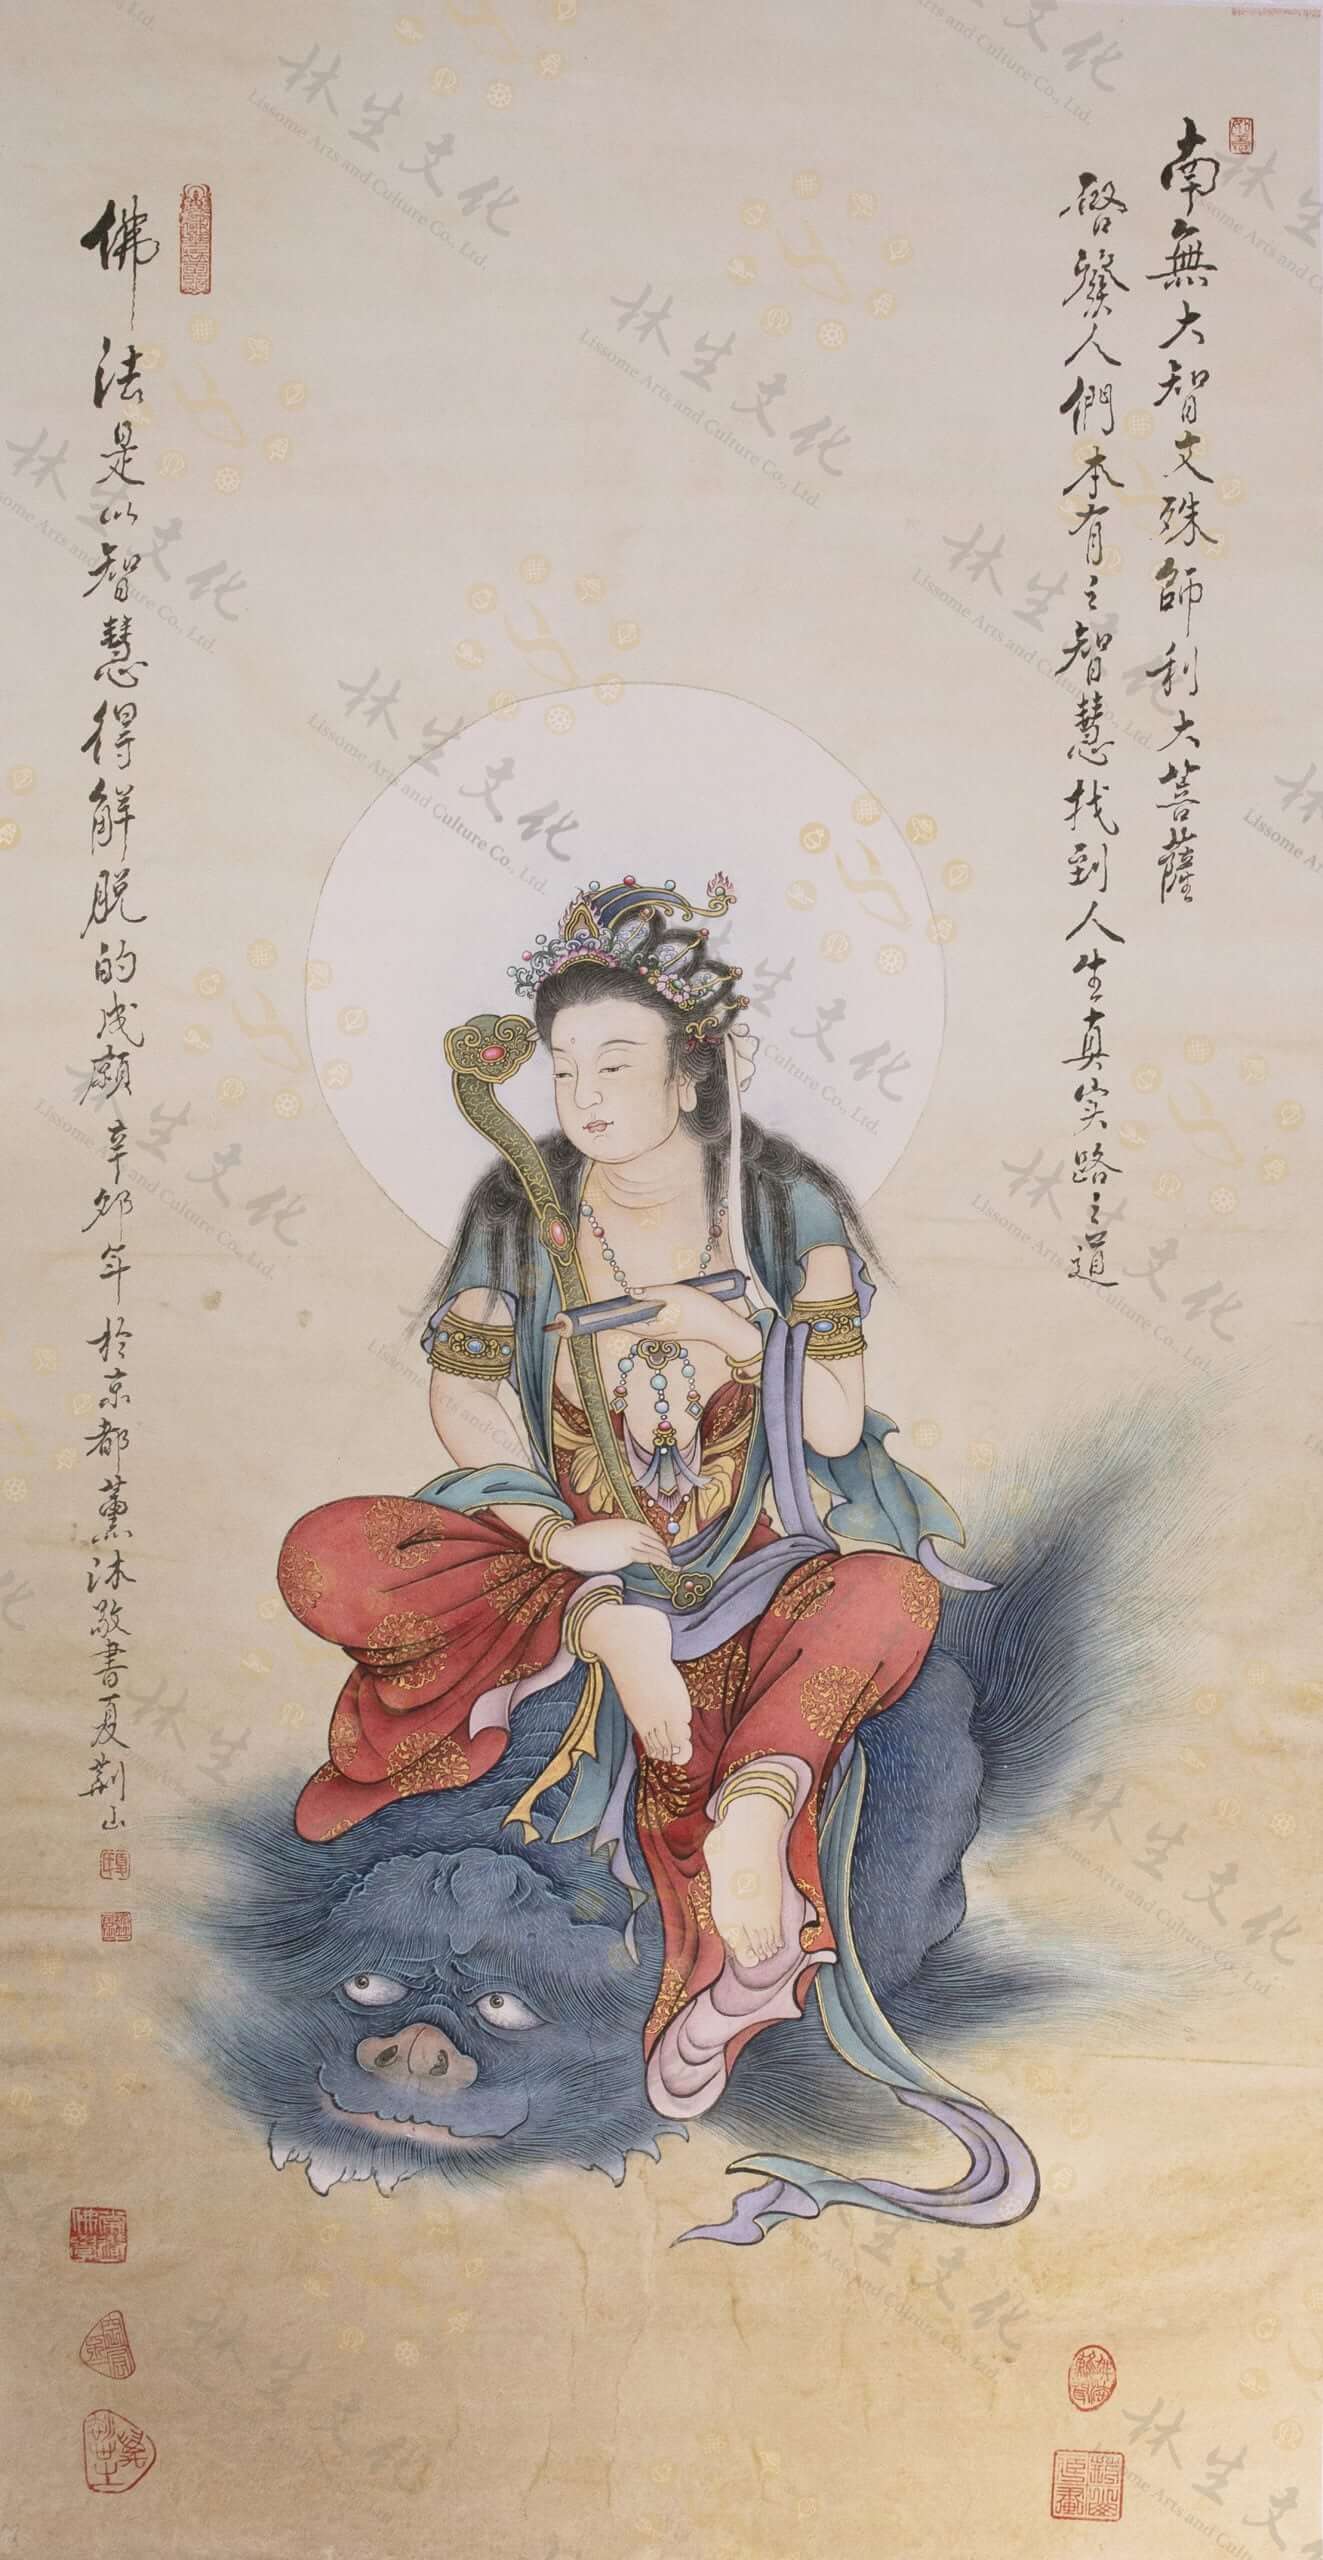 南無大智文殊師利大菩薩
啓發人們本有之智慧找到人生真实路之道
佛法是以智慧得解脫的成願辛卯年於京都薰沐敬書夏荊山
林生文化
Lissome Arts and Culture Co., Ltd.